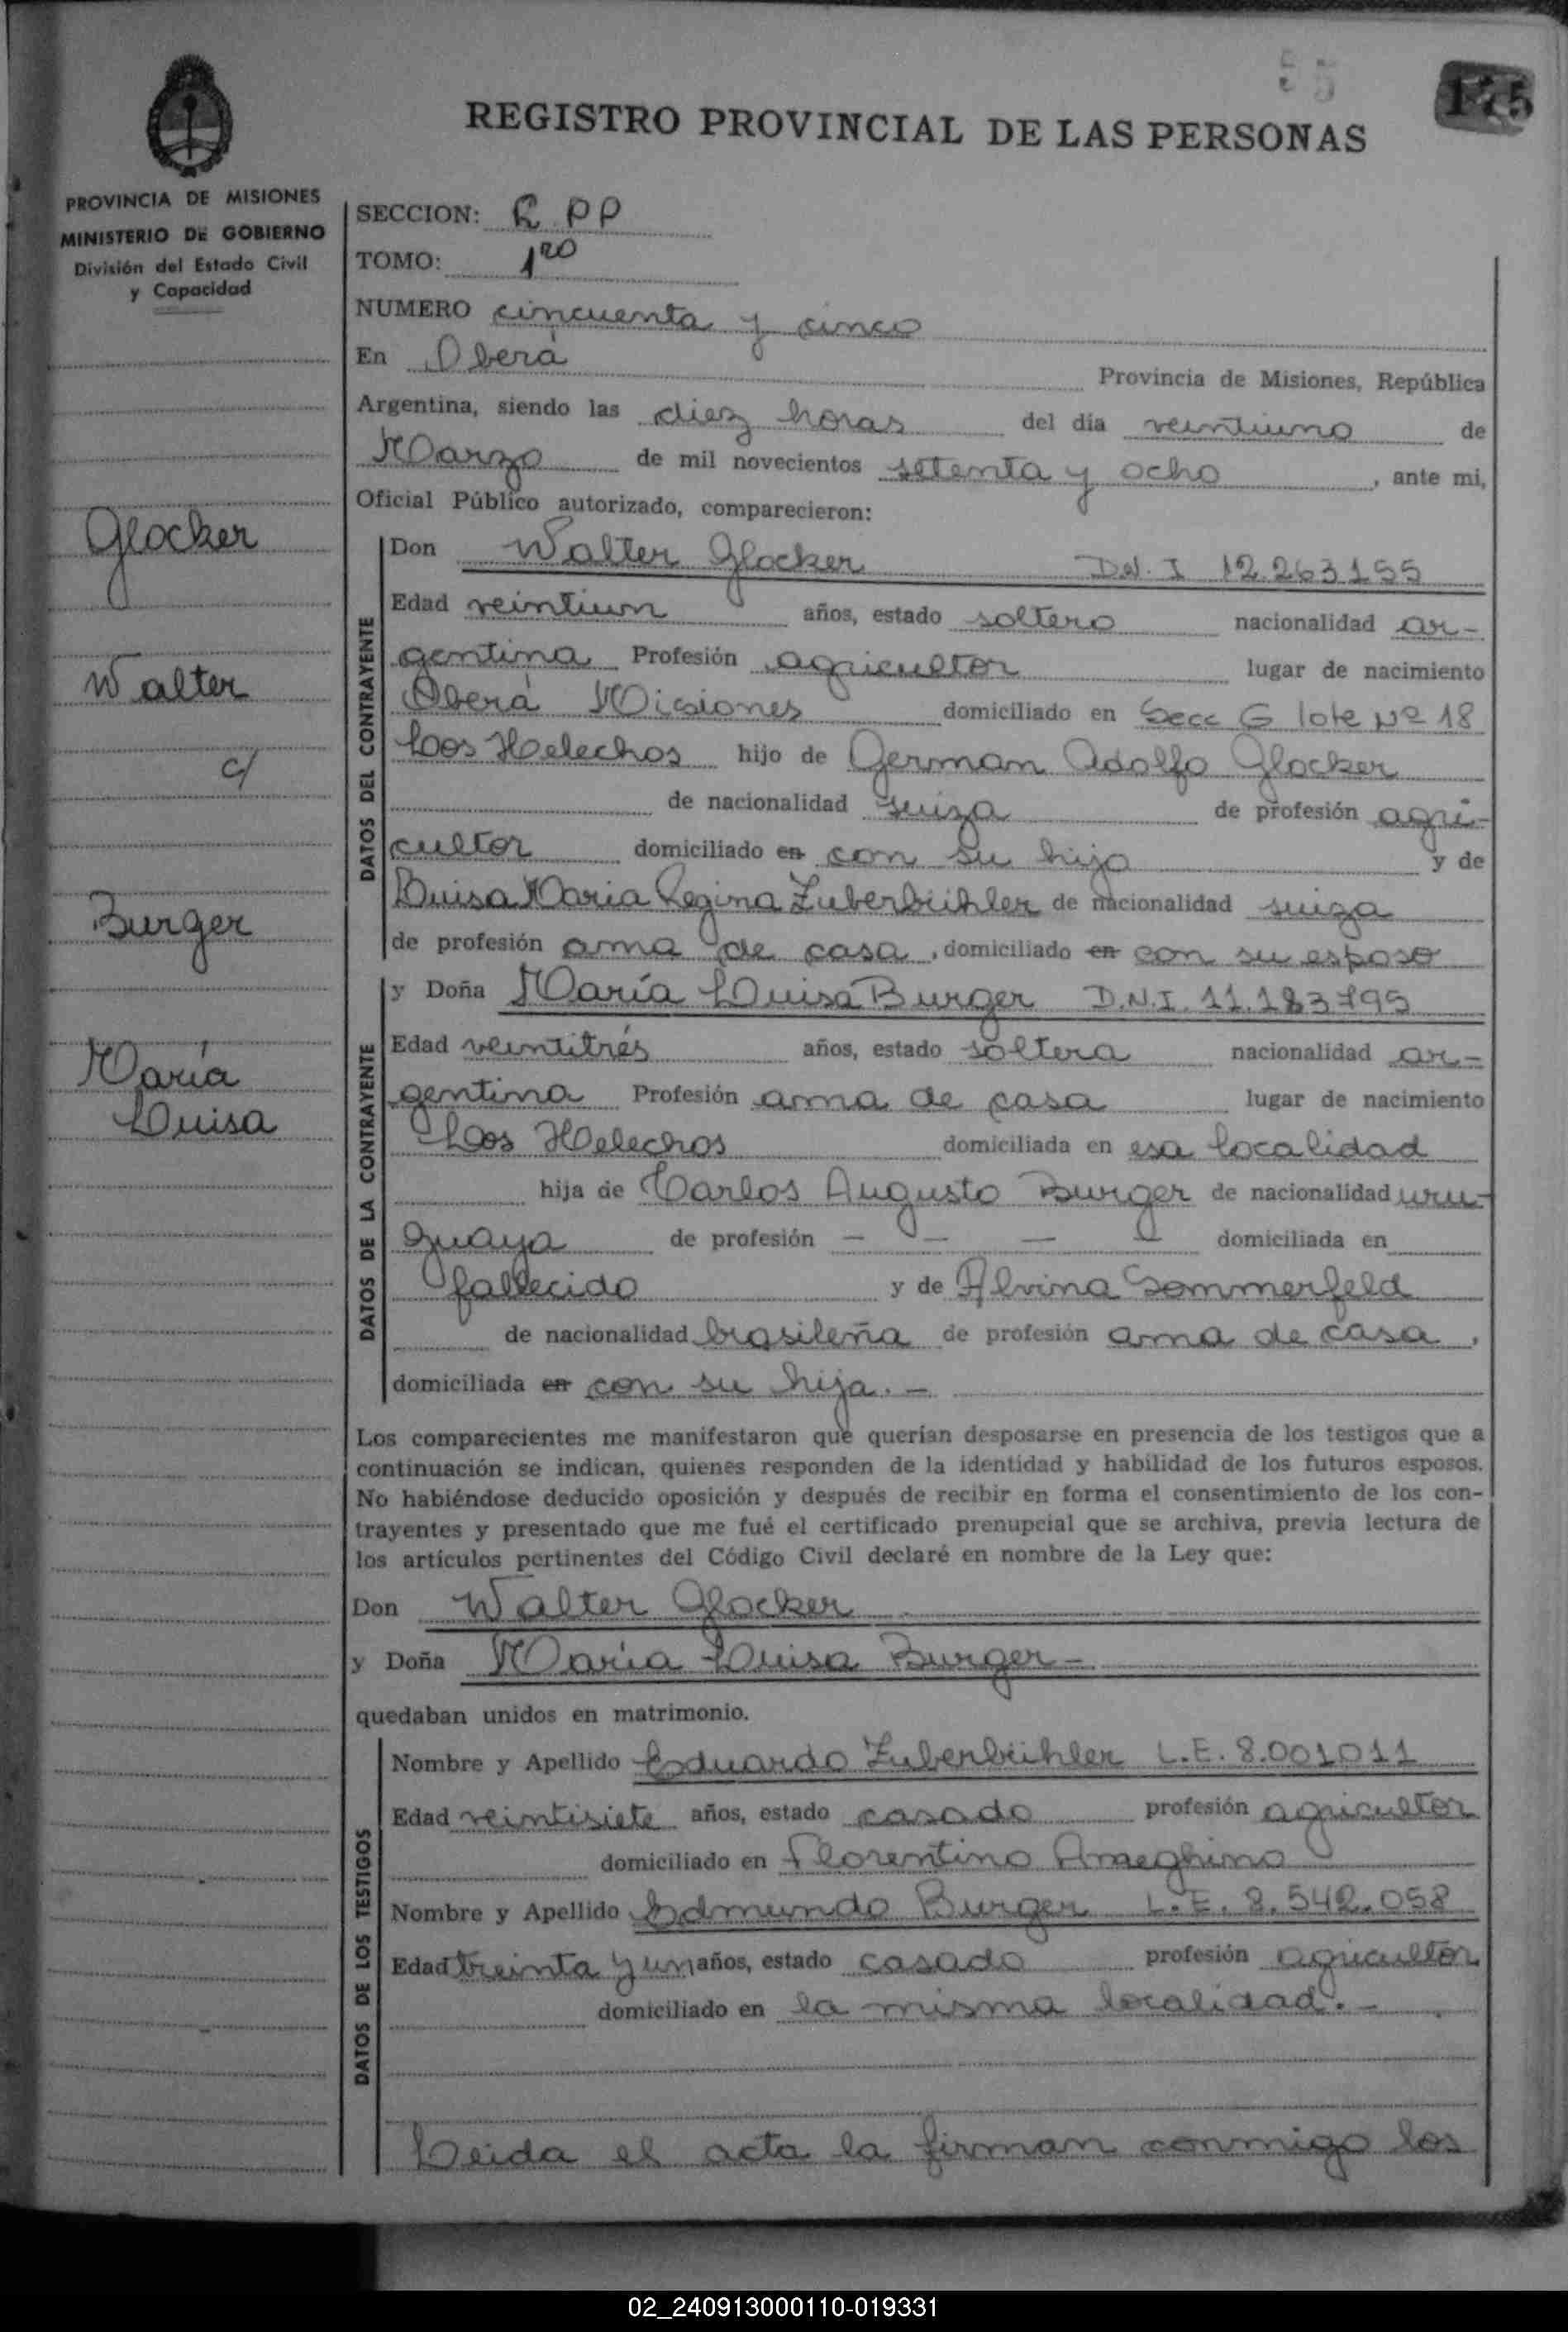 55
175
REGISTRO PROVINCIAL DE LAS PERSONAS
PROVINCIA DE MISIONES
MINISTERIO DE GOBIERNO
División del Estado Civil
y Capacidad
Glocker
Walter
c/
Burger
María
Luisa
SECCION: R PP
TOMO: 1ro
NUMERO cincuenta y cinco
En Oberá Provincia de Misiones, República
Argentina, siendo las diez horas del día veintiuno de
Marzo de mil novecientos setenta y ocho, ante mi,
Oficial Público autorizado, comparecieron:
DATOS DEL CONTRAYENTE
Don Walter Glocker D.N.I 12.263155
Edad veintiun años, estado soltero nacionalidad ar-
gentina Profesión agricultor lugar de nacimiento
Oberá Misiones domiciliado en Secc G lote Nº 18
Los Helechos hijo de German Adolfo Glocker
de nacionalidad suiza de profesión agri-
cultor domiciliado en con su hijo y de
Luisa Maria Regina Zuberbühler de nacionalidad suiza
de profesión ama de casa, domiciliado en con su esposo
DATOS DE LA CONTRAYENTE
y Doña María Luisa Burger D.N.I. 11.183795
Edad veintitrés años, estado soltera nacionalidad ar-
gentina Profesión ama de casa lugar de nacimiento
Los Helechos domiciliada en esa localidad
hija de Carlos Augusto Burger de nacionalidad uru-
guaya de profesión — — — — domiciliada en
fallecido y de Alvina Sommerfeld
de nacionalidad brasileña de profesión ama de casa,
domiciliada en con su hija. -
Los comparecientes me manifestaron que querían desposarse en presencia de los testigos que a
continuación se indican, quienes responden de la identidad y habilidad de los futuros esposos.
No habiéndose deducido oposición y después de recibir en forma el consentimiento de los con-
trayentes y presentado que me fué el certificado prenupcial que se archiva, previa lectura de
los artículos pertinentes del Código Civil declaré en nombre de la Ley que:
Don Walter Glocker
y Doña María Luisa Burger -
quedaban unidos en matrimonio.
DATOS DE LOS TESTIGOS
Nombre y Apellido Eduardo Zuberbühler L.E. 8.001011
Edad veintisiete años, estado casado profesión agricultor
domiciliado en Florentino Ameghino
Nombre y Apellido Edmundo Burger L.E. 8.542.058
Edad treinta y un años, estado casado profesión agricultor
domiciliado en la misma localidad. -
Leida el acta la firman conmigo los
02_240913000110-019331